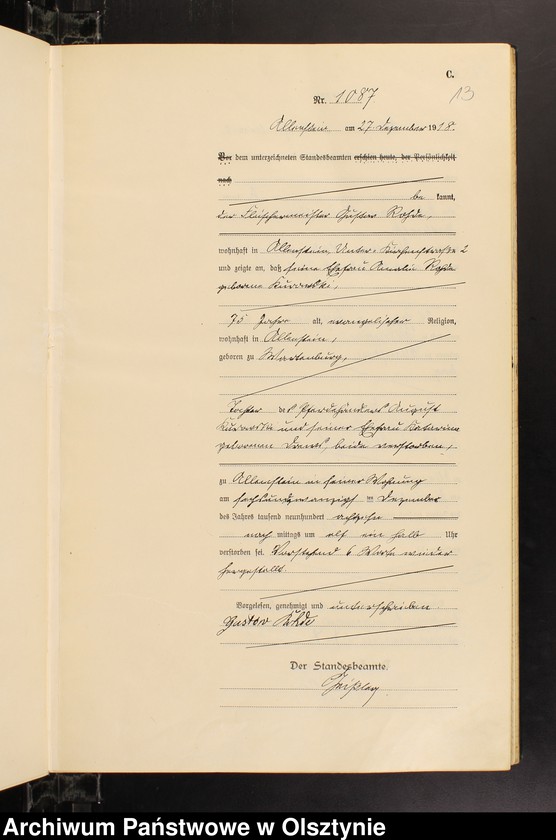 C.
13
Nr. 1087
Allenstein am 27. Dezember 1918.
Vor dem unterzeichneten Standesbeamten erschien heute, der Persönlichkeit
nach
be kannt,
der Fleischermeister Gustav Rohde,
wohnhaft in Allenstein, Unter-Kirchenstraße 2
und zeigte an, daß seine Ehefrau Amalie Rohde
geborene Kurowski,
75 Jahre alt, evangelischer Religion,
wohnhaft in Allenstein,
geboren zu Wartenburg,
Tochter des Pferdehändlers August
Kurowski und seiner Ehefrau Katarina
geborenen Drews, beide verstorben,
zu Allenstein in seiner Wohnung
am sechsundzwanzigsten Dezember
des Jahres tausend neunhundert achtzehn
nach mittags um elf ein halb Uhr
verstorben sei. Vorstehend 6 Worte wieder
hergestellt.
Vorgelesen, genehmigt und unterschrieben.
Gustav Rohde
Der Standesbeamte.
Archiwum Państwowe w Olsztynie